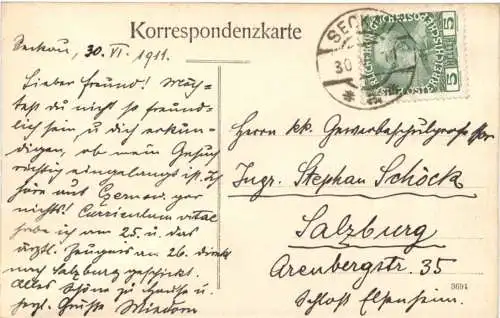 Korrespondenzkarte
Seckau, 30. VI. 1911.
Lieber Freund! Möch-
test du nicht so freund-
lich sein u dich erkun-
digen, ob mein Gesuch
richtig eingelangt ist. Ich
höre aus gar
nichts! Curriculum vitae
habe ich am 25. u. das
ärztl. Zeugnis am 26. direkt
nach Salzburg geschickt.
Alles Schöne zu Hause u.
herzl. Grüße
SECK
30
5
5
Herrn kk. Gewerbeschulprofessor
Ingr. Stephan Schöck
Salzburg
Arenbergstr. 35
Schloß Elsenheim.
3694